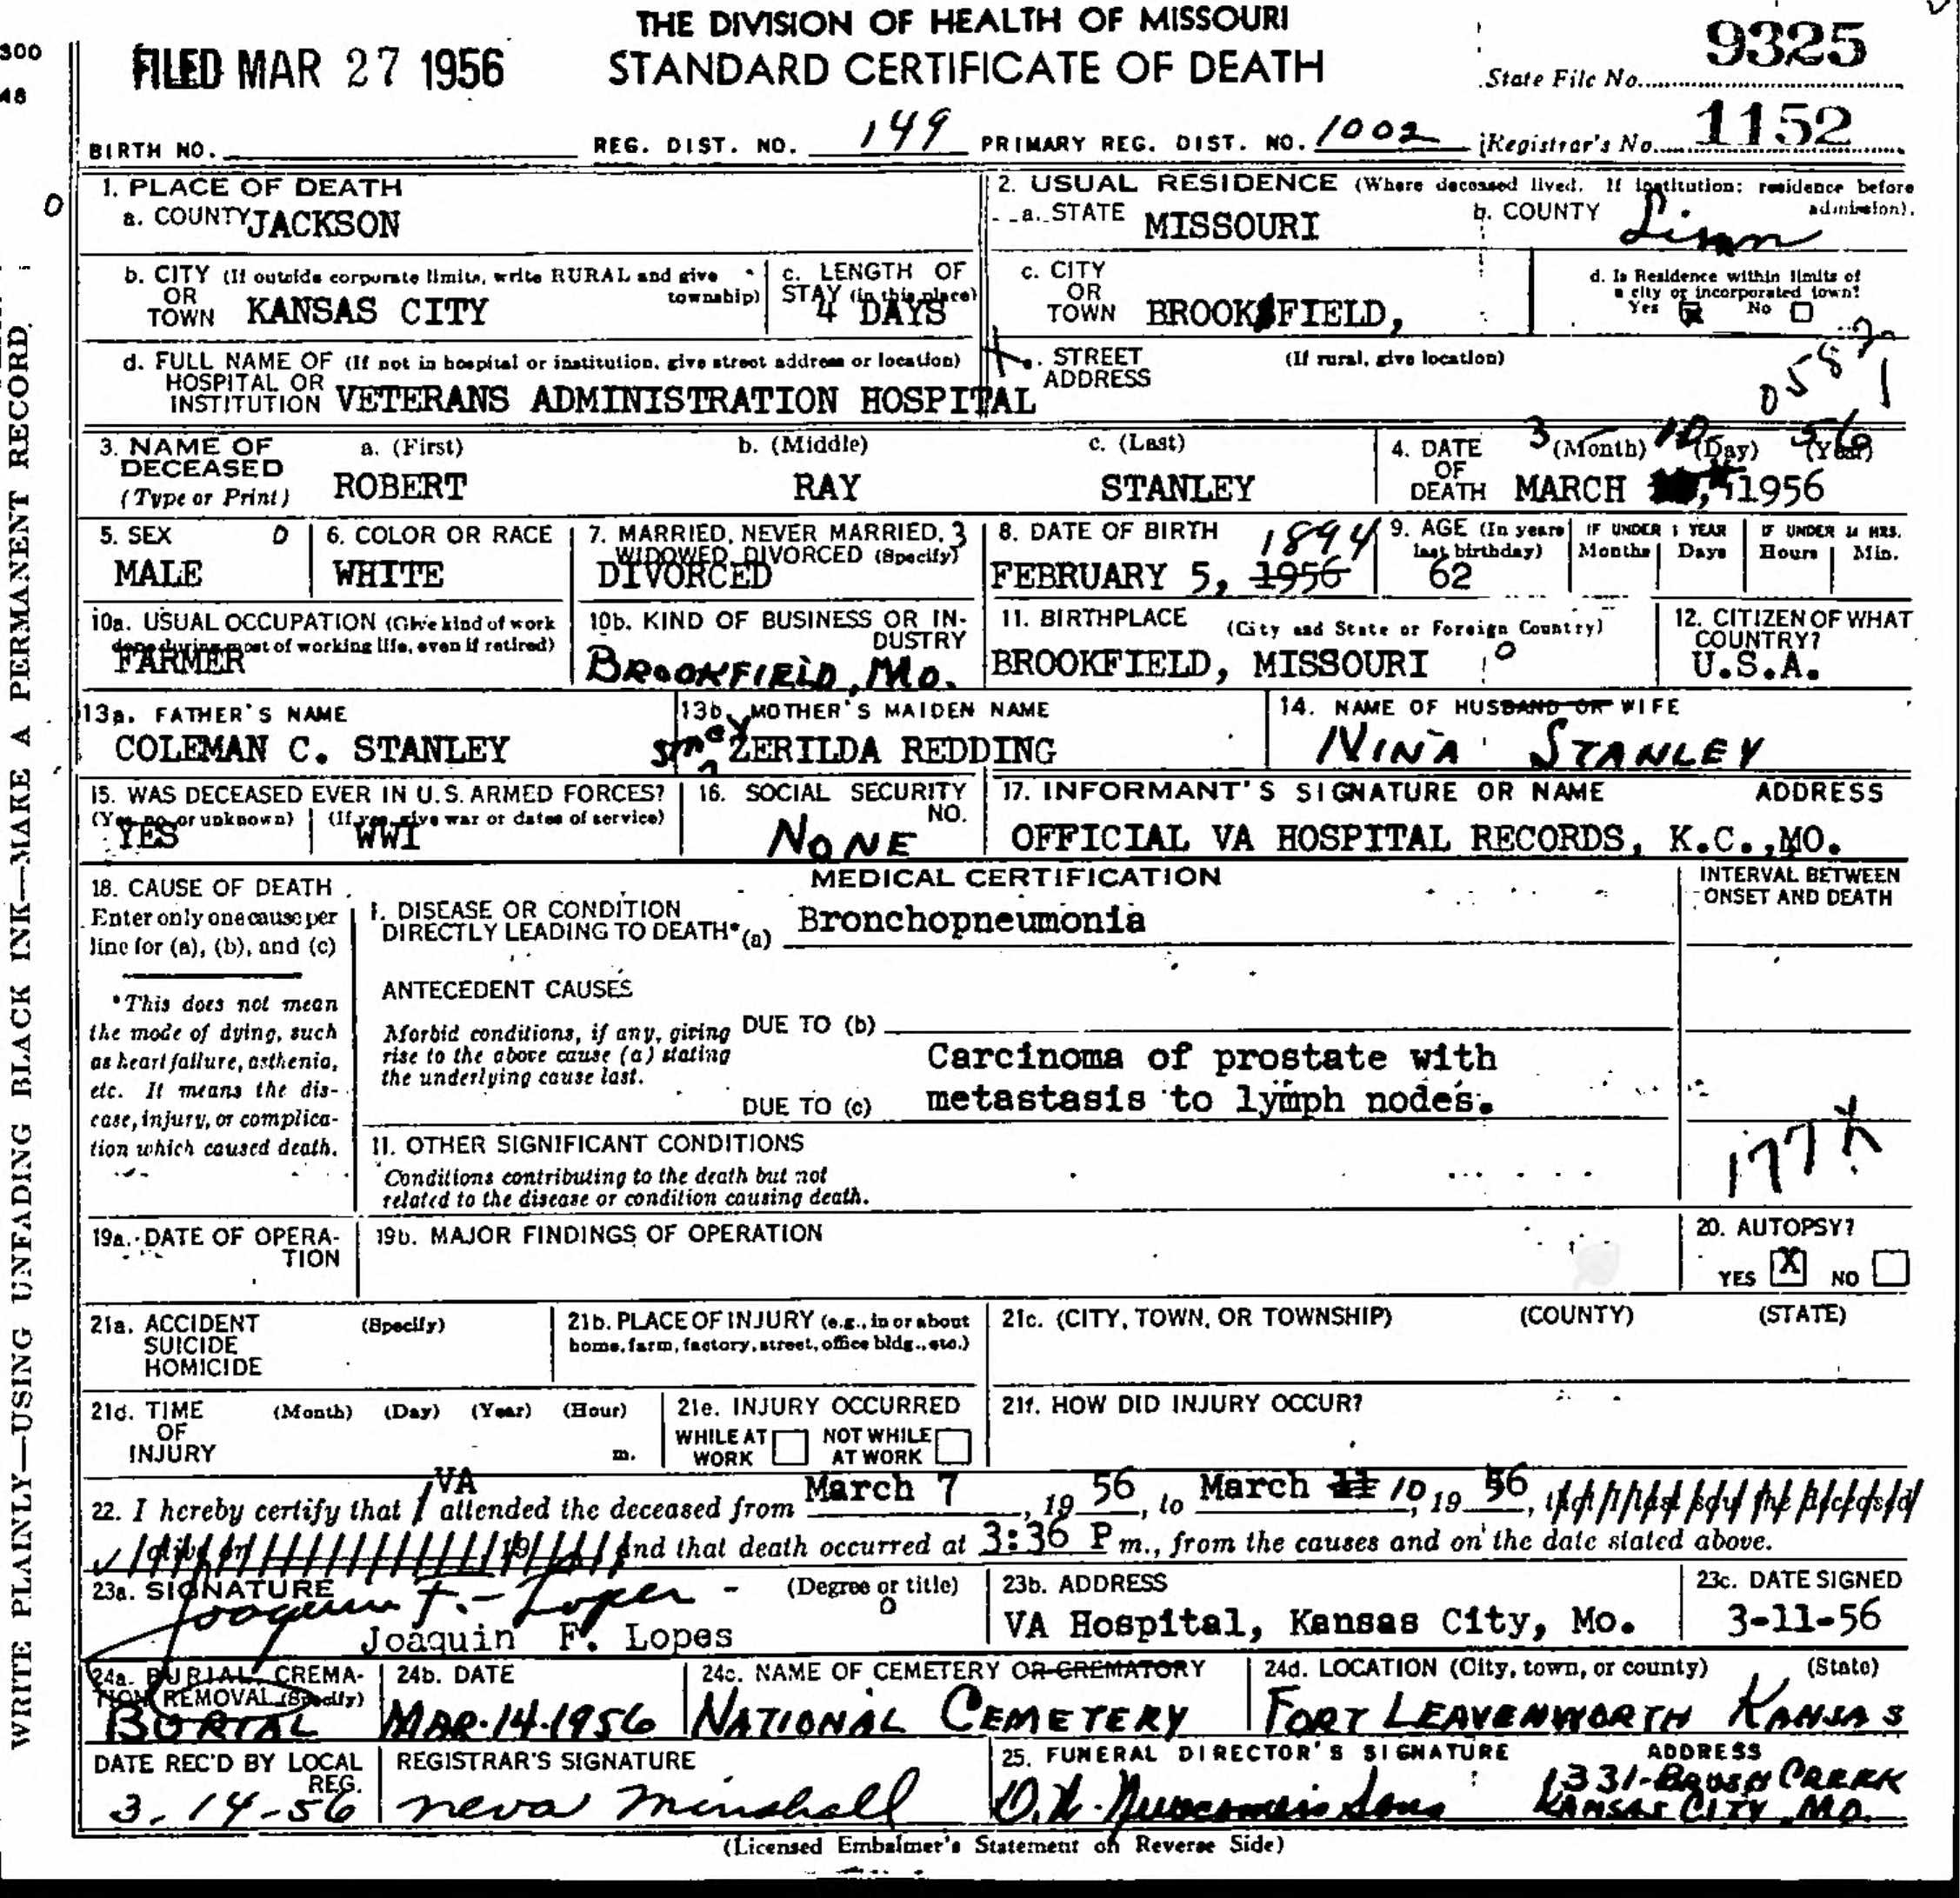 THE DIVISION OF HEALTH OF MISSOURI
STANDARD CERTIFICATE OF DEATH
FILED MAR 27 1956
300
48
State File No. 9325
BIRTH NO. REG. DIST. NO. 149 PRIMARY REG. DIST. NO. 1002 Registrar's No. 1152
WRITE PLAINLY—USING UNFADING BLACK INK—MAKE A PERMANENT RECORD.
1. PLACE OF DEATH
a. COUNTY JACKSON
b. CITY (If outside corporate limits, write RURAL and give township) OR TOWN KANSAS CITY
c. LENGTH OF STAY (in this place) 4 DAYS
d. FULL NAME OF (If not in hospital or institution, give street address or location) HOSPITAL OR INSTITUTION VETERANS ADMINISTRATION HOSPITAL
2. USUAL RESIDENCE (Where deceased lived. If institution: residence before admission).
a. STATE MISSOURI b. COUNTY Linn
c. CITY OR TOWN BROOKFIELD,
d. Is Residence within limits of a city or incorporated town? Yes No
STREET ADDRESS (If rural, give location)
3. NAME OF DECEASED (Type or Print)
a. (First) ROBERT
b. (Middle) RAY
c. (Last) STANLEY
4. DATE OF DEATH (Month) (Day) (Year)
3 10 56
MARCH 1956
5. SEX 0 MALE
6. COLOR OR RACE WHITE
7. MARRIED, NEVER MARRIED, WIDOWED, DIVORCED (Specify) 3 DIVORCED
8. DATE OF BIRTH FEBRUARY 5, 1956 1894
9. AGE (In years last birthday) 62
IF UNDER 1 YEAR Months Days
IF UNDER 24 HRS. Hours Min.
10a. USUAL OCCUPATION (Give kind of work done during most of working life, even if retired) FARMER
10b. KIND OF BUSINESS OR INDUSTRY BROOKFIELD, MO.
11. BIRTHPLACE (City and State or Foreign Country) BROOKFIELD, MISSOURI 0
12. CITIZEN OF WHAT COUNTRY? U.S.A.
13a. FATHER'S NAME COLEMAN C. STANLEY
13b. MOTHER'S MAIDEN NAME ZERILDA REDDING
14. NAME OF HUSBAND OR WIFE NINA STANLEY
15. WAS DECEASED EVER IN U.S. ARMED FORCES? (Yes, no, or unknown) YES (If yes, give war or dates of service) WWI
16. SOCIAL SECURITY NO. NONE
17. INFORMANT'S SIGNATURE OR NAME ADDRESS
OFFICIAL VA HOSPITAL RECORDS, K.C.,MO.
18. CAUSE OF DEATH
Enter only one cause per line for (a), (b), and (c)
*This does not mean the mode of dying, such as heart failure, asthenia, etc. It means the disease, injury, or complication which caused death.
MEDICAL CERTIFICATION
INTERVAL BETWEEN ONSET AND DEATH
I. DISEASE OR CONDITION DIRECTLY LEADING TO DEATH* (a) Bronchopneumonia
ANTECEDENT CAUSES
Morbid conditions, if any, giving rise to the above cause (a) stating the underlying cause last.
DUE TO (b)
DUE TO (c) Carcinoma of prostate with
metastasis to lymph nodes.
II. OTHER SIGNIFICANT CONDITIONS
Conditions contributing to the death but not related to the disease or condition causing death.
19a. DATE OF OPERATION
19b. MAJOR FINDINGS OF OPERATION
20. AUTOPSY?
YES X NO
21a. ACCIDENT SUICIDE HOMICIDE (Specify)
21b. PLACE OF INJURY (e.g., in or about home, farm, factory, street, office bldg., etc.)
21c. (CITY, TOWN, OR TOWNSHIP) (COUNTY) (STATE)
21d. TIME OF INJURY (Month) (Day) (Year) (Hour) m.
21e. INJURY OCCURRED WHILE AT WORK NOT WHILE AT WORK
21f. HOW DID INJURY OCCUR?
22. I hereby certify that VA attended the deceased from March 7, 19 56, to March 11 10, 19 56, that I last saw the deceased
alive on 19 and that death occurred at 3:36 P m., from the causes and on the date stated above.
23a. SIGNATURE (Degree or title)
Joaquin F. Lopes
Joaquin F. Lopes
23b. ADDRESS VA Hospital, Kansas City, Mo.
23c. DATE SIGNED 3-11-56
24a. BURIAL, CREMATION, REMOVAL (Specify) BURIAL
24b. DATE MAR.14.1956
24c. NAME OF CEMETERY OR CREMATORY NATIONAL CEMETERY
24d. LOCATION (City, town, or county) (State) FORT LEAVENWORTH KANSAS
DATE REC'D BY LOCAL REG. 3-14-56
REGISTRAR'S SIGNATURE Neva Minshall
25. FUNERAL DIRECTOR'S SIGNATURE ADDRESS
1331-BRUSH CREEK
KANSAS CITY, MO.
(Licensed Embalmer's Statement on Reverse Side)